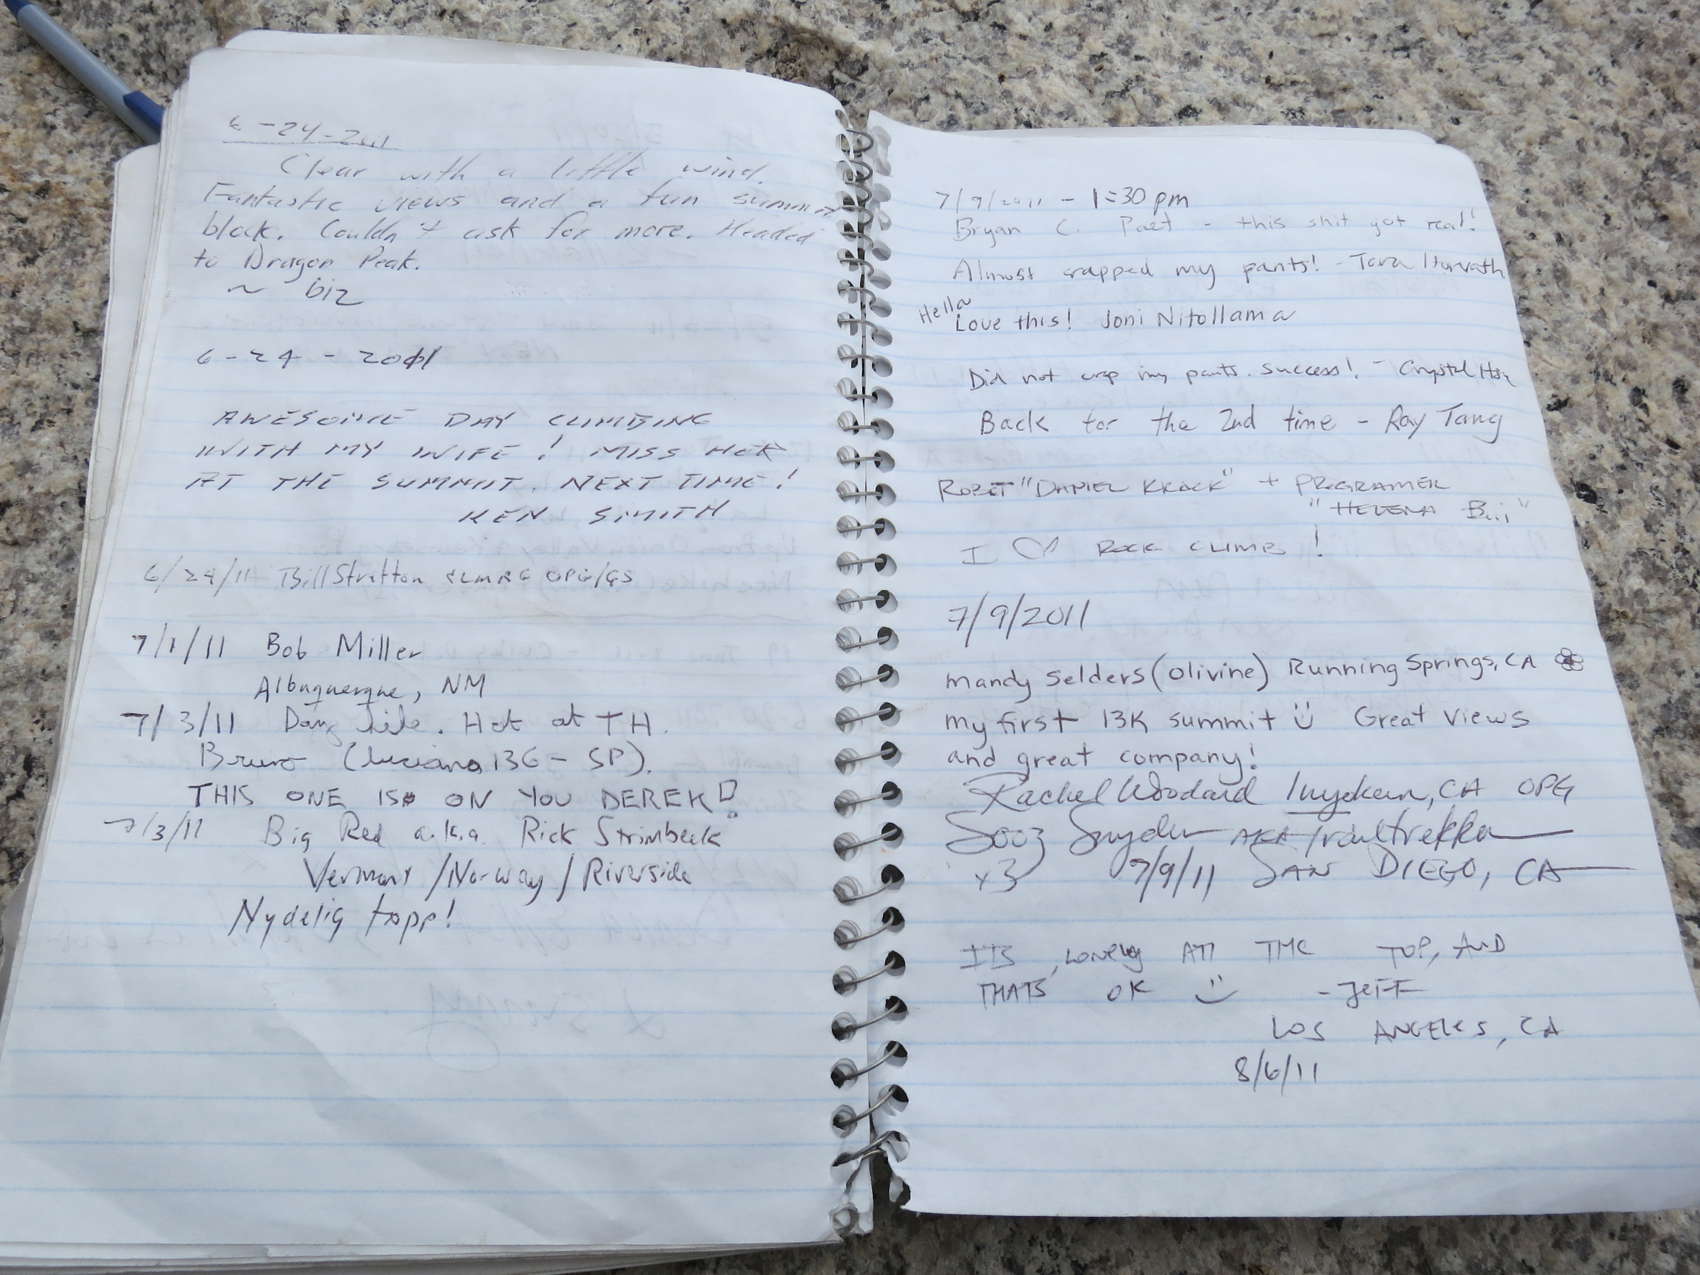 6-24-2011
Clear with a little wind.
Fantastic views and a fun summit
block. Couldn't ask for more. Headed
to Dragon Peak.
~ biz
6-24-2011
AWESOME DAY CLIMBING
WITH MY WIFE! MISS HER
AT THE SUMMIT. NEXT TIME!
KEN SMITH
6/24/11 Bill Stratton CLMRG OPG/GS
7/1/11 Bob Miller
Albuquerque, NM
7/3/11 Hot at TH.
Bruno (Luciano136 - SP).
THIS ONE IS ON YOU DEREK!
7/3/11 Big Red a.k.a. Rick Strimbeck
Vermont / Norway / Riverside
Nydelig topp!
7/9/2011 - 1:30 pm
Bryan C. Paet - this shit got real!
Almost crapped my pants! - Tara Horvath
Hella
Love this! Joni Nitollama
Did not crap my pants. success! - Crystal
Back for the 2nd time - Ray Tang
ROBET "DANIEL KROCK" + PROGRAMER
"HELENA Bui"
I ♡ ROCK CLIMB!
7/9/2011
mandy selders (olivine) Running Springs, CA
my first 13K summit ☺ Great views
and great company!
Rachel Woodard Inyokern, CA OPG
Sooz Snyder AKA trailtrekka
x3 7/9/11 SAN DIEGO, CA
ITS LONELY AT THE TOP, AND
THATS OK ☺ - JEFF
LOS ANGELES, CA
8/6/11